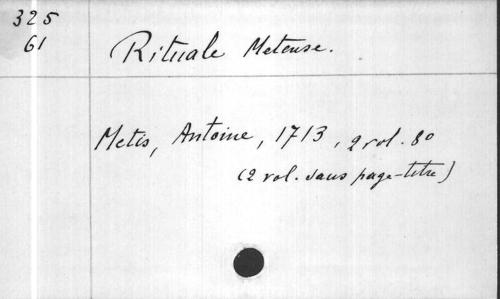 325
61
Rituale Metense.
Metis, Antoine, 1713, 2 vol. 8o
(2 vol. sans page-titre)